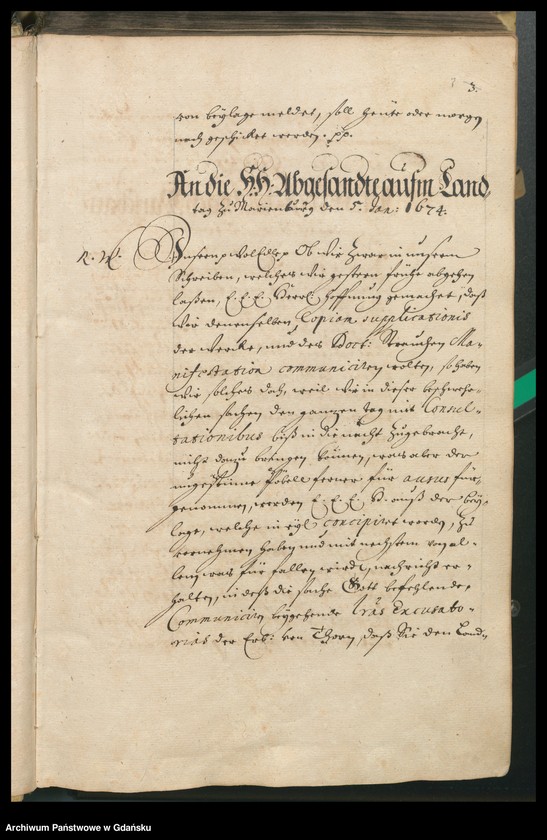 3.
von beylage meldet, soll heute oder morgen
nach geschicket werden. pp.
An die H.H. Abgesandte aufm Land
tag zu Marienburg den 5. Jan: 1674.
Unsern WolEdlen Ob wir zwar in unserm
Schreiben, welches wir gestern frühe abgehen
laßen, E. E. E. Herrl. hoffnung gemachet, daß
wir denenselben Copiam supplicationis
der Wercke, und des Doct: Strauchen Ma-
nifestation communiciren wolten, so haben
wir solches doch, weil wir in dieser beschwer-
lichen sachen den gantzen tag mit Consul-
tationibus biß in die nacht zugebracht,
nicht dazu bringen können, was aber der
ungestüme Pöbell ferner für ausus für-
genommen, werden E. E. E. H. auß der bey-
lage, welche in eyl concipiret werden, zu
vernehmen haben und mit nechstem von al-
lem was für fallen wird, nachricht er-
halten, in deß die sache Gott befehlende,
Communiciren beygehende Lrâs Excusato-
rias der Erb: von Thorn, daß Sie den Land-
Archiwum Państwowe w Gdańsku